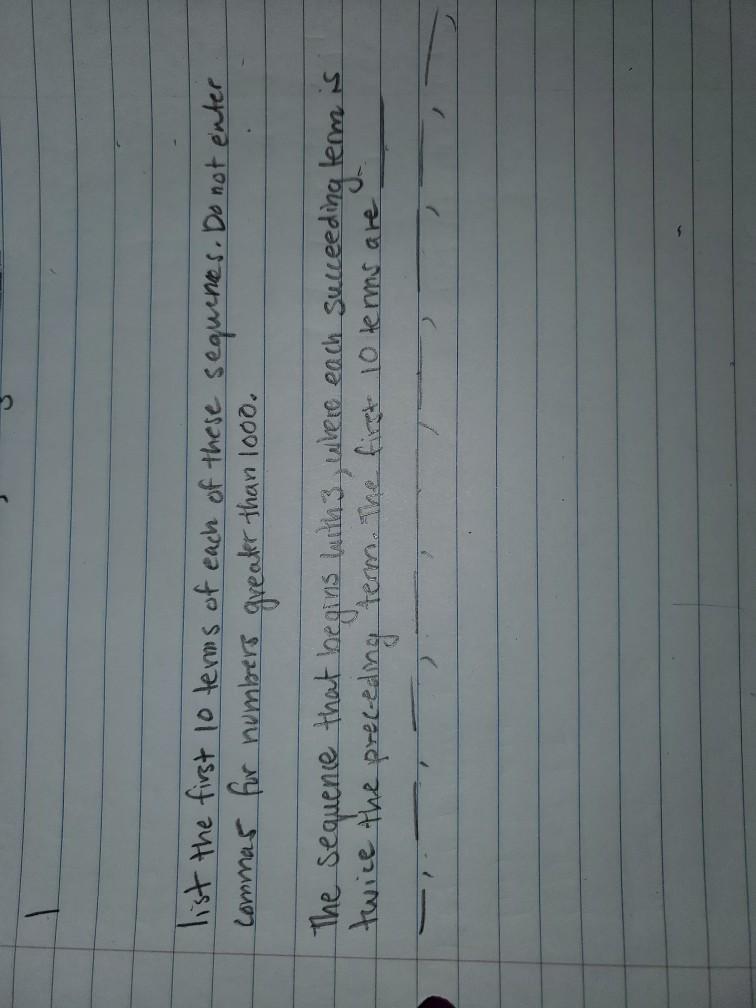 list the first 10 terms of each of these sequences. Do not enter
commas for numbers greater than 1000.
The sequence that begins with 3, where each succeeding term is
twice the preceding term. The first 10 terms are ____
__, __, __, __, __, __, __, __, __,